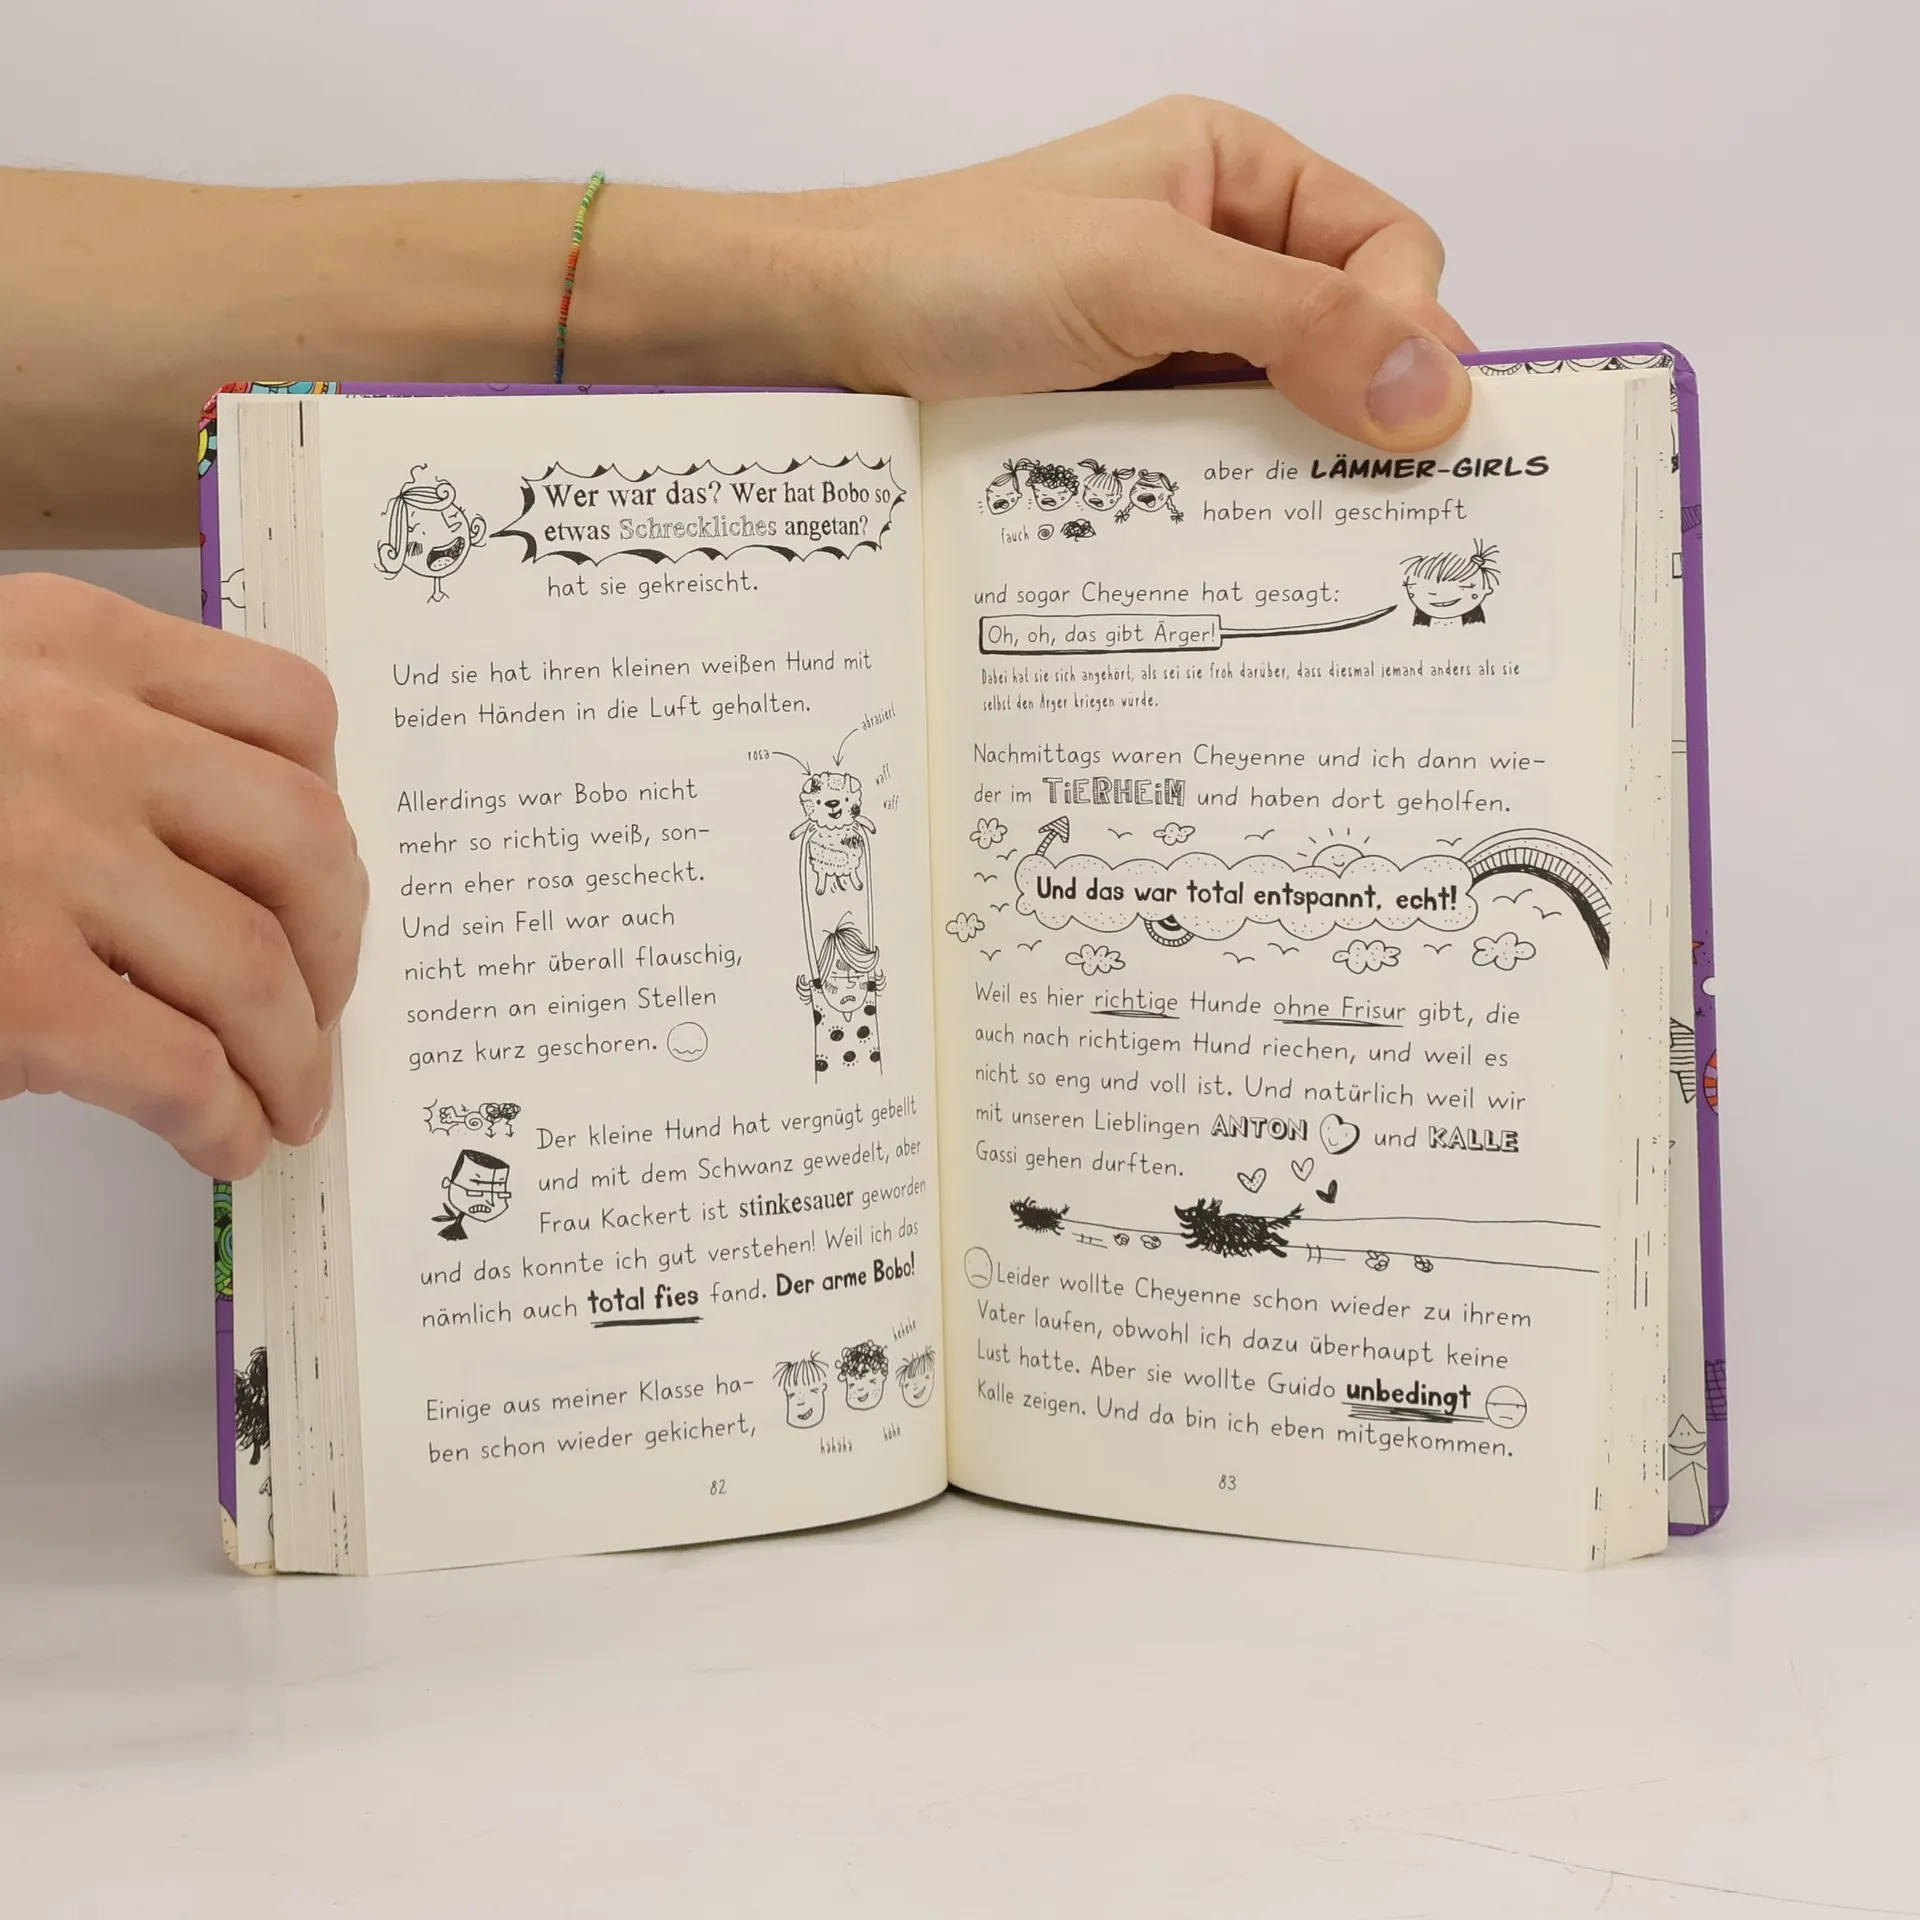 Wer war das? Wer hat Bobo so
etwas Schreckliches angetan?
hat sie gekreischt.
Und sie hat ihren kleinen weißen Hund mit
beiden Händen in die Luft gehalten.
abrasiert
rosa
waff
waff
Allerdings war Bobo nicht
mehr so richtig weiß, son-
dern eher rosa gescheckt.
Und sein Fell war auch
nicht mehr überall flauschig,
sondern an einigen Stellen
ganz kurz geschoren.
Der kleine Hund hat vergnügt gebellt
und mit dem Schwanz gewedelt, aber
Frau Kackert ist stinkesauer geworden
und das konnte ich gut verstehen! Weil ich das
nämlich auch total fies fand. Der arme Bobo!
Einige aus meiner Klasse ha-
ben schon wieder gekichert,
hehehe
hähähä
höhö
82
aber die LÄMMER-GIRLS
haben voll geschimpft
fauch
und sogar Cheyenne hat gesagt:
Oh, oh, das gibt Ärger!
Dabei hat sie sich angehört, als sei sie froh darüber, dass diesmal jemand anders als sie
selbst den Ärger kriegen würde.
Nachmittags waren Cheyenne und ich dann wie-
der im TiERHEiM und haben dort geholfen.
Und das war total entspannt, echt!
Weil es hier richtige Hunde ohne Frisur gibt, die
auch nach richtigem Hund riechen, und weil es
nicht so eng und voll ist. Und natürlich weil wir
mit unseren Lieblingen ANTON und KALLE
Gassi gehen durften.
Leider wollte Cheyenne schon wieder zu ihrem
Vater laufen, obwohl ich dazu überhaupt keine
Lust hatte. Aber sie wollte Guido unbedingt
Kalle zeigen. Und da bin ich eben mitgekommen.
83